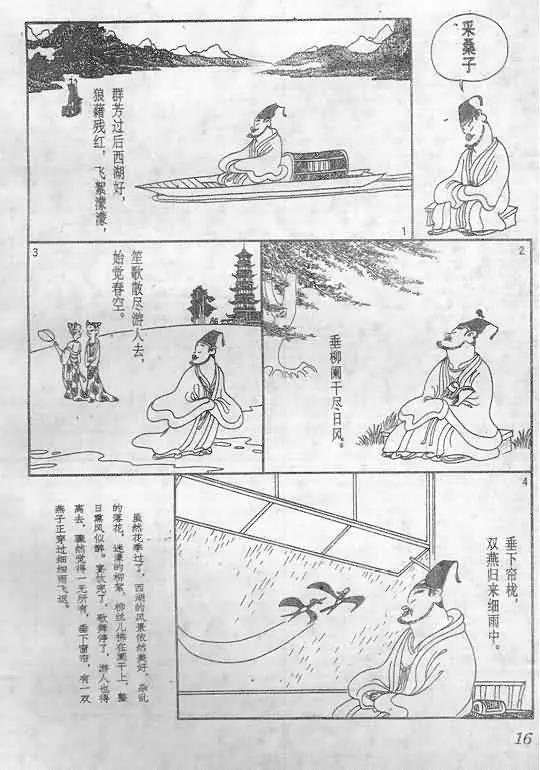 采桑子
群芳过后西湖好，
狼藉残红，飞絮濛濛，
1
2
垂柳阑干尽日风。
3
笙歌散尽游人去，
始觉春空。
4
垂下帘栊，
双燕归来细雨中。
虽然花季过了，西湖的风景依然美好。杂乱
的落花，迷濛的柳絮。柳丝儿拂在阑干上，整
日熏风似醉。宴饮完了，歌舞停了，游人也得
离去，骤然觉得一无所有，垂下窗帘，有一双
燕子正穿过细细雨飞返。
16